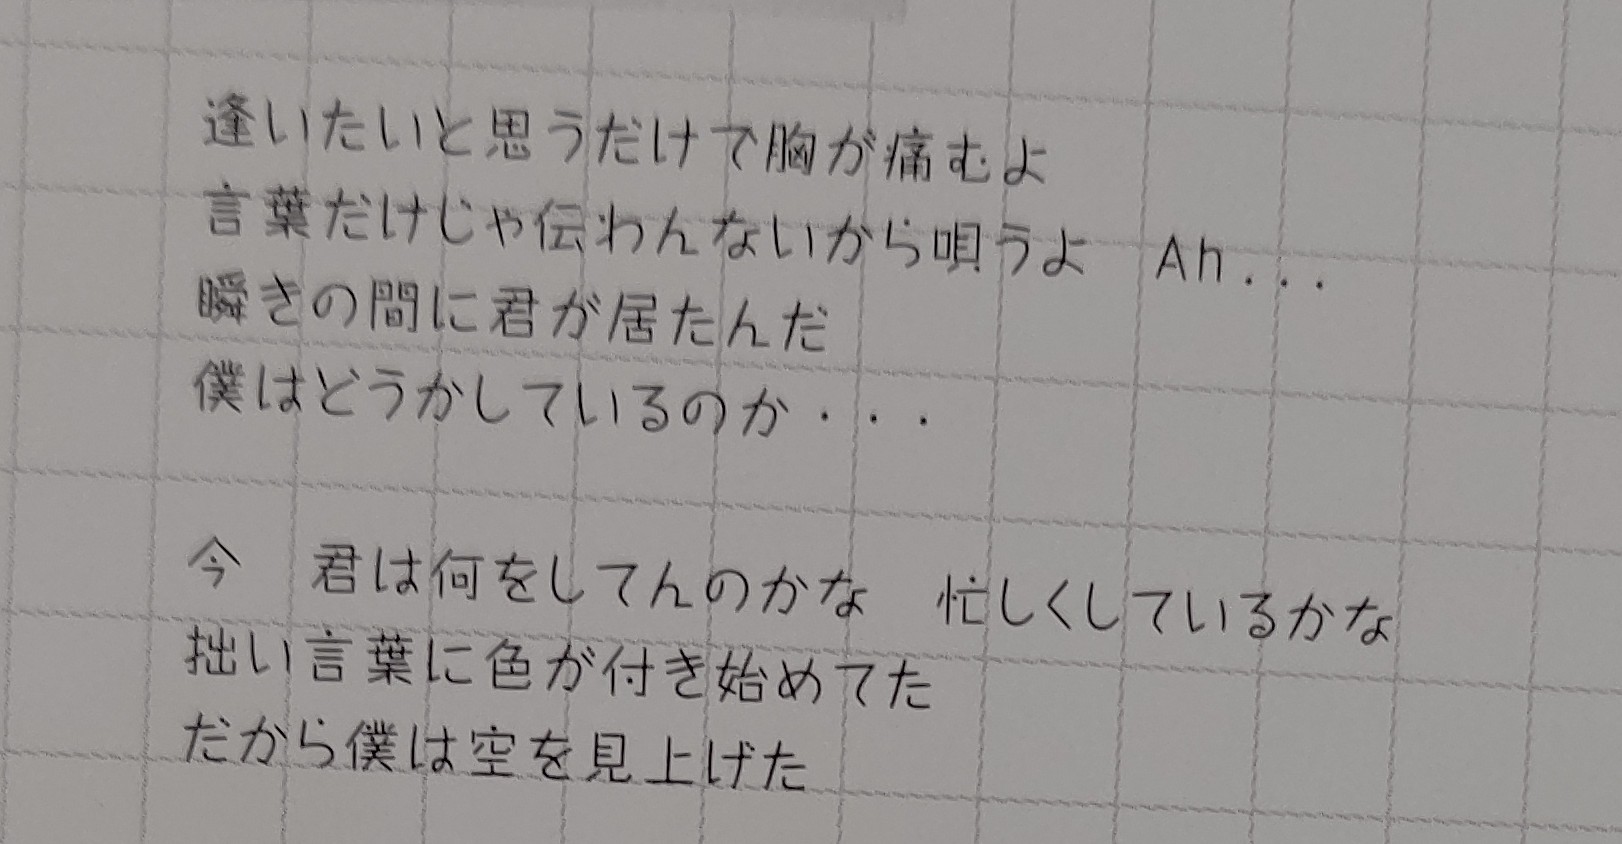 逢いたいと思うだけで胸が痛むよ
言葉だけじゃ伝わんないから唄うよ　Ah...
瞬きの間に君が居たんだ
僕はどうかしているのか・・・
今　君は何をしてんのかな　忙しくしているかな
拙い言葉に色が付き始めてた
だから僕は空を見上げた